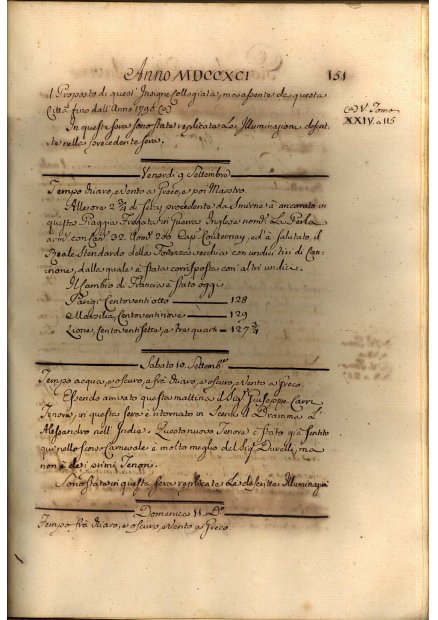 Anno MDCCXCI
151
il Proposto di quest' Insigne Collegiata, ma assente da questa
Città fino dall' Anno 1790. (a)
(a) V. Tomo
XXIV. a 115
In questa sera sono state replicate Le Illuminazioni descrit-
te nella precedente sera.
Venerdì 9 Settembre
Tempo chiaro, e vento a Greco, e poi Maestro.
Alle ore 2 3/4 di sera, procedente da Smirne à ancorato in
questa Piaggia Fregata in Guerra Inglese nom.ª La Perla
arm. con Can. 32. Uom. 206 Cap. Courtenay, ed à salutato il
Reale Stendardo della Fortezza vecchia con undici tiri di Can-
none, dalla quale è stata corrisposta con altri undici.
Il Cambio di Francia è stato oggi
Parigi Centoventi otto 128
Marsilia, Centoventinove 129
Lione, Centoventisette, e tre quarti 127 3/4
Sabato 10. Settemb.e
Tempo acqua, e oscuro, e frà chiaro, e oscuro, e vento a Greco.
Essendo arrivato questa mattina il Sig. Giuseppe
Tenore, in questa sera è ritornato in Scena il Dramma L'
Alessandro nell' Indie. Questo nuovo Tenore è stato già sentito
qui nello scorso Carnevale è molto meglio del Sig. ma
non è dei primi Tenori.
Sono state in questa sera replicate Le descritte Illuminazioni
Domenica 11. D.o
Tempo frà chiaro, e oscuro, e vento a Greco